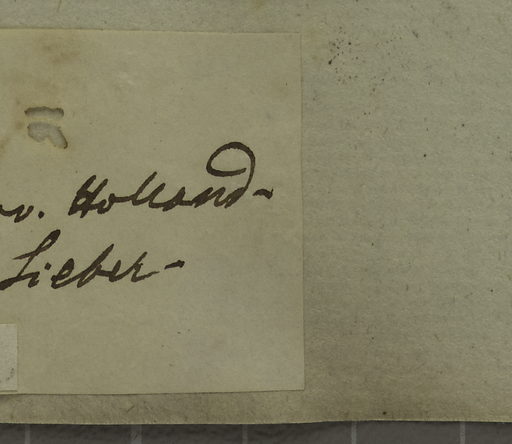 ov. Holland-
Sieber-